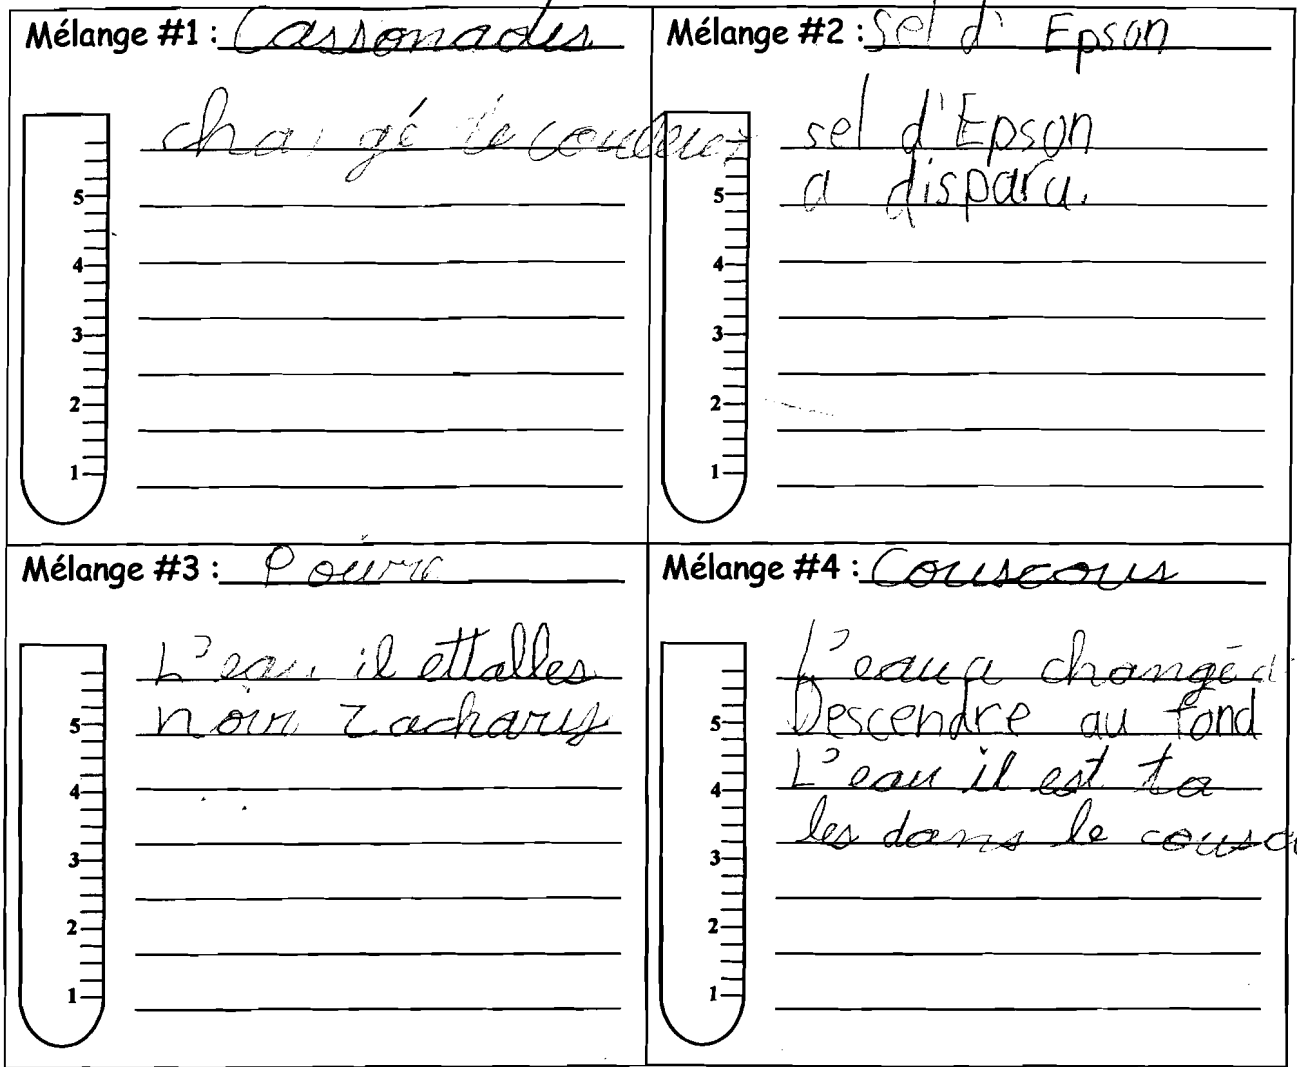 Mélange #1 : Cassonades
changé de couleur
5
4
3
2
1
Mélange #2 : Sel d'Epson
sel d'Epson
a disparu.
5
4
3
2
1
Mélange #3 : Poivre
L'eau il ettalles
noir Zachary
5
4
3
2
1
Mélange #4 : Couscous
L'eau a changé d
Descendre au fond
L'eau il est ta
les dans le cousc
5
4
3
2
1